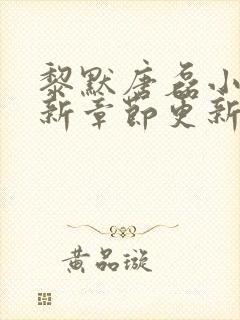 黎默唐磊小
新章节更新
黄品璇